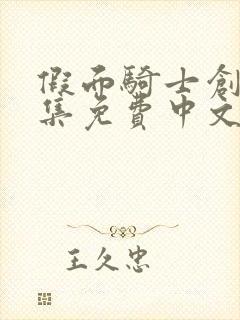 假面騎士創
集免費中文
王久忠